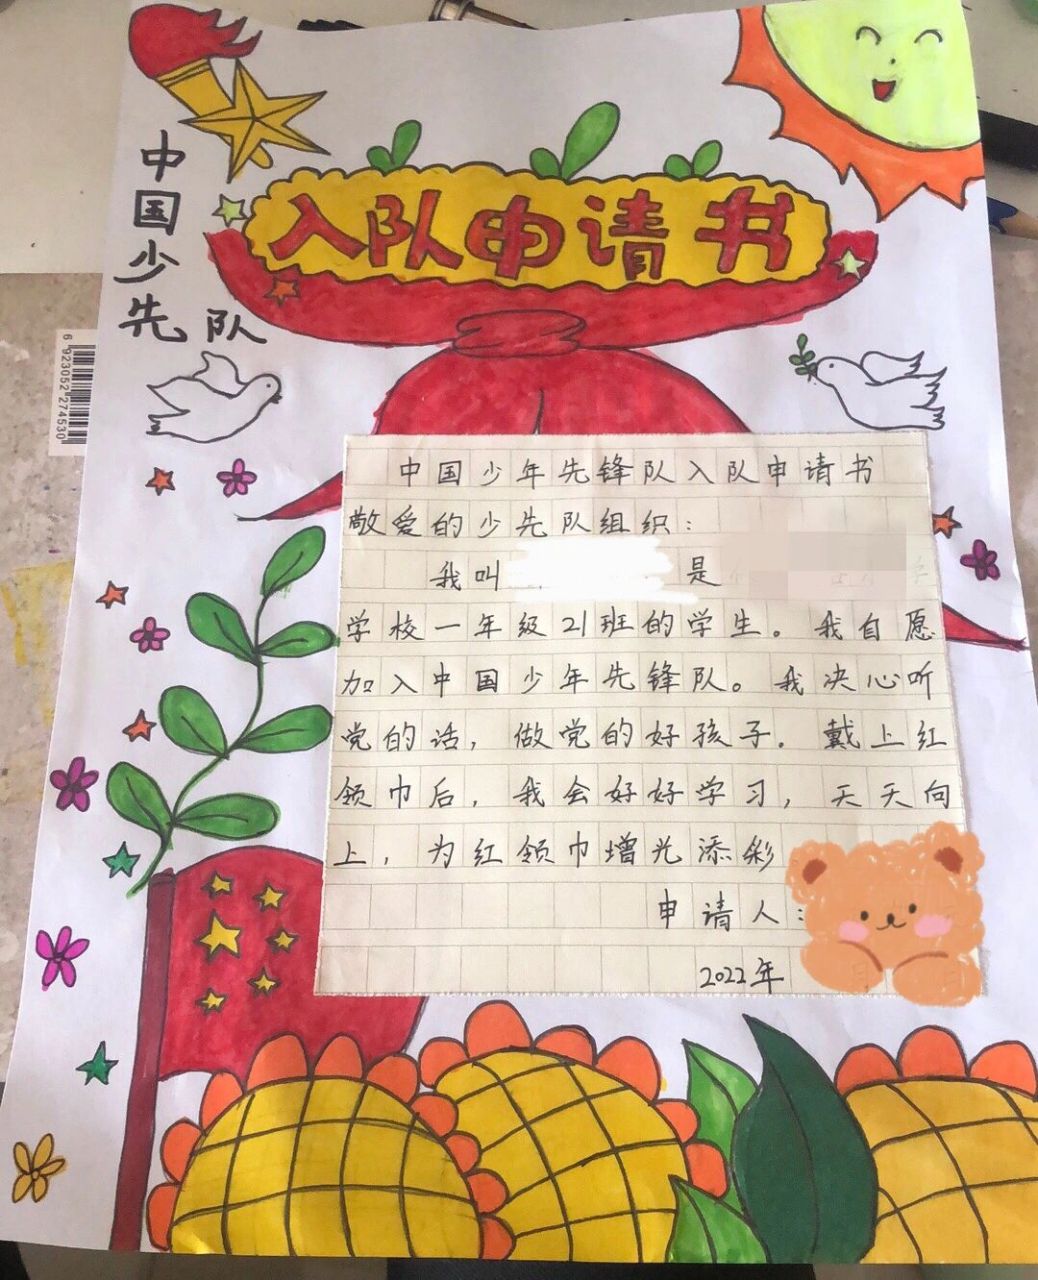 中国少先队
入队申请书
6 923052 274530
中国少年先锋队入队申请书
敬爱的少先队组织：
我叫 是
学校一年级21班的学生。我自愿
加入中国少年先锋队。我决心听
党的话，做党的好孩子。戴上红
领巾后，我会好好学习，天天向
上，为红领巾增光添彩
申请人：
2022年